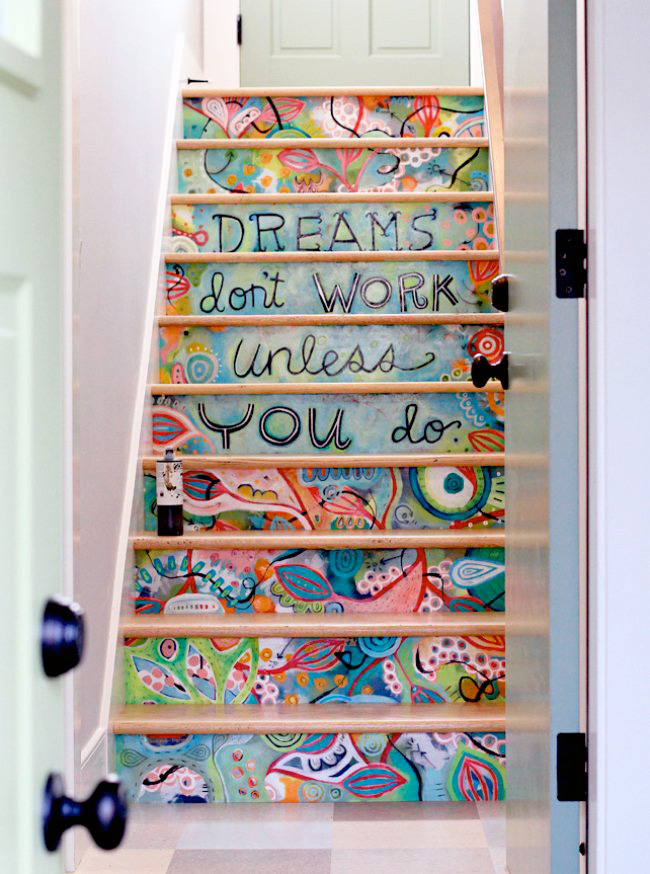 DREAMS
don't WORK
unless
YOU do.